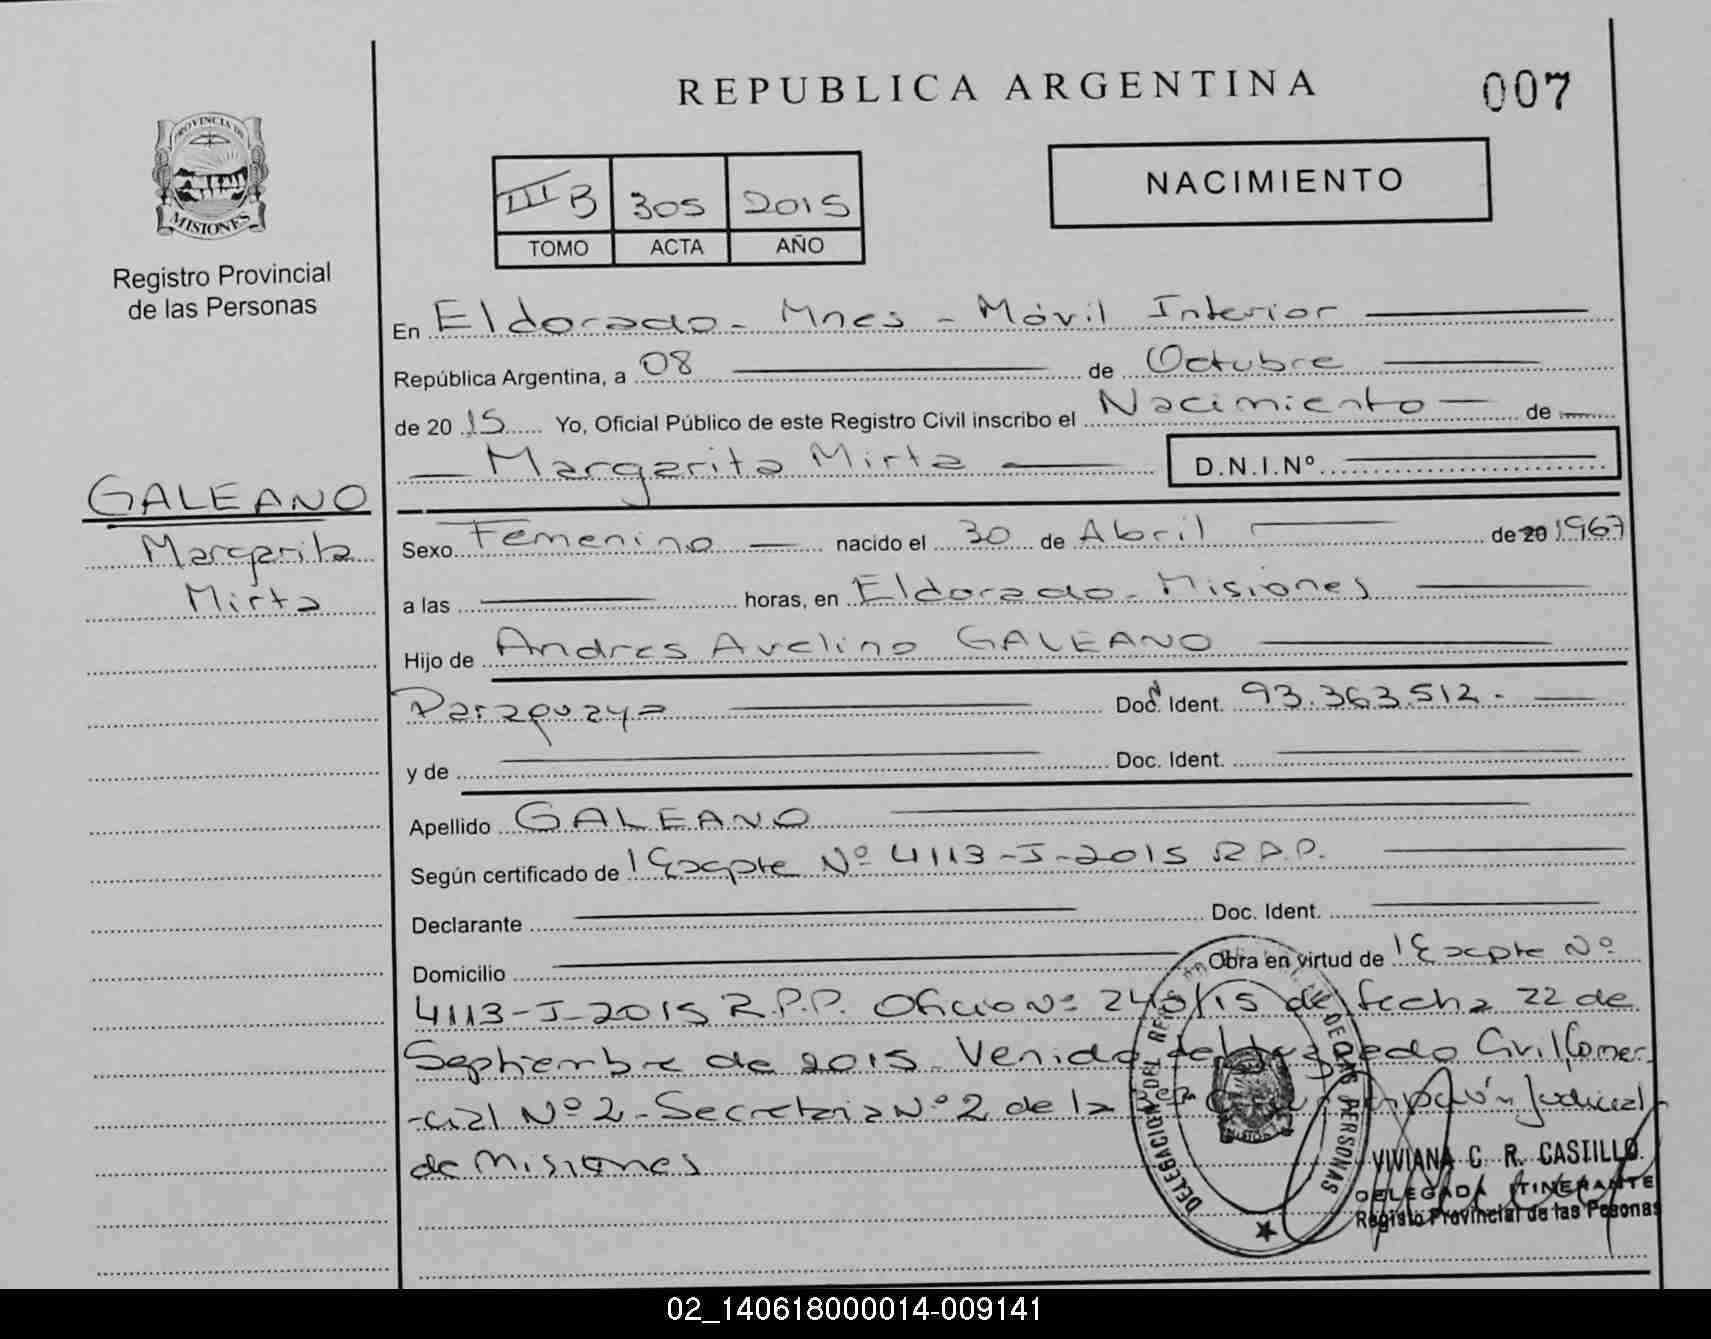 REPUBLICA ARGENTINA
007
PROVINCIA DE
MISIONES
Registro Provincial
de las Personas
III B 305 2015
TOMO ACTA AÑO
NACIMIENTO
En Eldorado - Mnes - Móvil Interior
República Argentina, a 08 de Octubre
de 2015 Yo, Oficial Público de este Registro Civil inscribo el Nacimiento de
Margarita Mirta D.N.I.Nº
GALEANO
Margarita
Mirta
Sexo Femenino nacido el 30 de Abril de 20 1967
a las horas, en Eldorado - Misiones
Hijo de Andres Avelino GALEANO
Paraguaya Doc. Ident. 93.363.512.-
y de Doc. Ident.
Apellido GALEANO
Según certificado de Expte Nº 4113-I-2015 R.P.P.
Declarante Doc. Ident.
Domicilio Obra en virtud de Expte Nº
4113-I-2015 R.P.P. Oficio Nº /15 de fecha 22 de
Septiembre de 2015. Venido del Juzgado Civil Comer-
-cial Nº 2 - Secretaria Nº 2 de la Judicial
de Misiones
DELEGACION DEL DE LAS PERSONAS
VIVIANA C. R. CASTILLO
DELEGADA ITINERANTE
Registo Provincial de las Pesonas
02_140618000014-009141